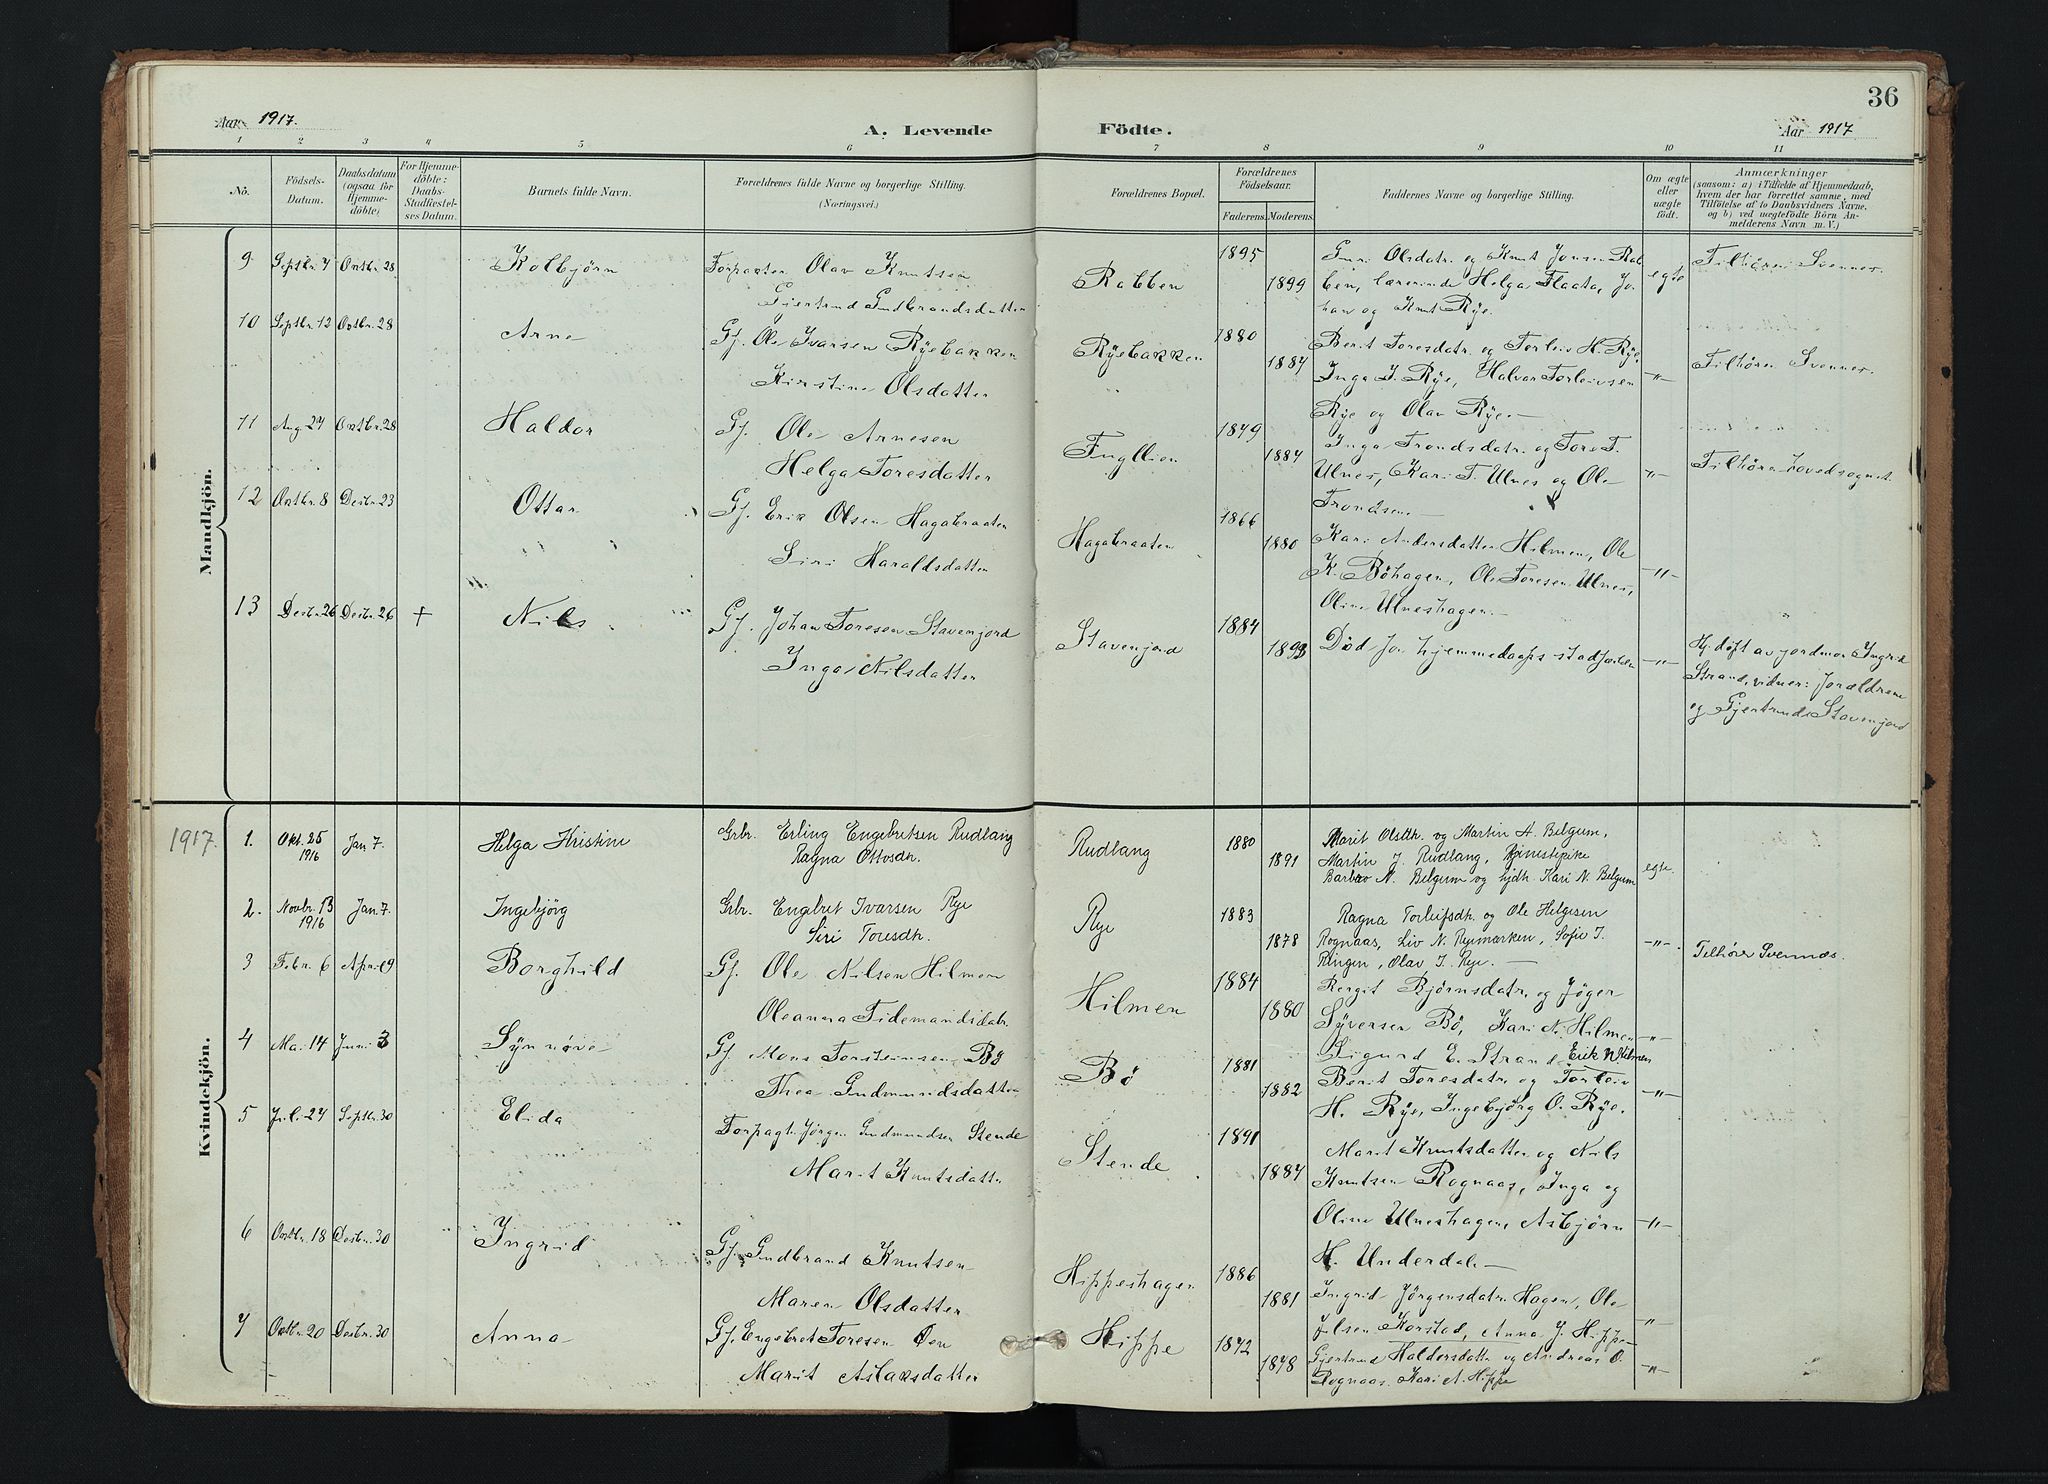 36
Aar 1917.
A. Levende Födte.
Aar 1917
1 2 3 4 5 6 7 8 9 10 11
No.
Födsels-Datum.
Daabsdatum (ogsaa för Hjemmedöbte)
For Hjemmedöbte: Daabs-Stadfæstelses Datum.
Barnets fulde Navn.
Forældrenes fulde Navne og borgerlige Stilling.
(Næringsvei.)
Forældrenes Bopæl.
Forældrenes Födselsaar.
Faderens. Moderens.
Faddernes Navne og borgerlige Stilling.
Om ægte eller uægte födt.
Anmærkninger
(saasom: a) i Tilfælde af Hjemmedaab,
hvem der har forrettet samme, med
Tilföielse af to Daabsvidners Navne.
og b) ved uægtefödte Börn Anmelderens Navn m. V.)
Mandkjön.
9 Septbr. 4 Octbr. 28 Kolbjörn Forpagter Olav Knutsen
Gjertrud Gudbrandsdatter
Rabben 1895 1899
Guri Olsdatr. og Knut Jonsen Rab
ben, lærerinde Helga Flaata, Jo
han og Knut Rye.
egte Tilhören Svennes.
10 Septbr. 12 Octbr. 28 Arne Gf. Ole Ivarsen Ryebakken
Kirstine Olsdatter
Ryebakken 1880 1884
Berit Toresdatr. og Torleiv H. Rye,
Inga I. Rye, Halvor Torleivsen
Rye og Olav Rye.
-"- Tilhören Svennes.
11 Aug 24 Octbr. 28 Haldor Gf. Ole Arnesen
Helga Toresdatter
Fugllien 1849 1884
Inga Trondsdatr. og Tore T.
Ulnes, Kari T. Ulnes og Ole
Trondsen.
-"- Tilhören hovedsognet
12 Octbr. 8 Desbr. 23 Ottar Gf. Erik Olsen Hagabraaten
Siri Haraldsdatter
Hagabraaten 1866 1880
Kari Andersdatter Hilmen, Ole
K. Böhagen, Ole Toresen Ulnes,
Oline Ulneshagen.
-"-
13 Desbr. 26 Desbr. 26 + Nils Gf. Johan Toresen Stavenjord
Inga Nilsdatter
Stavenjord 1884 1893
Död før hjemmedaaps stadfæstelse
-"- Hj. døpt av jordmor Ingrid
Strand, vidner: forældrene
og Gjertrude Stavenjord
Kvindekjön.
1917.
1. Okt. 25 1916 Jan 7. Helga Kristine Grbr. Erling Engebretsen Rudlang
Ragna Ottosdtr.
Rudlang 1880 1891
Marit Olsdtr. og Martin A. Belgum,
Martin J. Rudlang, Tjenestepike
Barbro N. Belgum og Gjdtr. Kari N. Belgum
egte.
2. Novbr. 13 1916 Jan 7. Ingebjörg Grbr. Engebret Ivarsen Rye
Siri Toresdtr.
Rye 1883 1878
Ragna Torleifsdtr. og Ole Helgesen
Rognaas, Liv N. Ryemarken, Sofie T.
Ringen, Olav I. Rye.
-"- Tilhører Svennæs.
3 Febr. 6 April 9 Borghild Gf. Ole Nilsen Hilmen
Oleanna Tidemandsdatr.
Hilmen 1884 1880
Bergit Bjørnsdatr. og Jøger
Syversen Bø, Kari N. Hilmen
Sigurd E. Strand, Erik N Hilmen
-"-
4 Mai 14 Juni 3 Synnøve Gf. Mons Torsteinsen Bø
Thea Gudmundsdatter
Bø 1881 1882
Berit Toresdatr. og Torleiv
H. Rye, Ingebjörg O. Rye.
-"-
5 Juli 24 Septbr. 30 Elida Forpagtr. Jörgen Gudmundsen Stende
Marit Knutsdatter
Stende 1891 1884
Marit Knutsdatter og Nils
Knutsen Rognaas, Inga og
Oline Ulneshagen, Asbjörn
H. Underdal.
-"-
6 Octbr. 18 Desbr. 30 Ingrid Gf. Gudbrand Knutsen
Maren Olsdatter
Hippeshagen 1886 1881
Ingrid Jörgensdatr. Hagen, Ole
Olsen Korstad, Anna J. Hippe
-"-
7 Octbr. 20 Desbr. 30 Anna Gf. Engebret Toresen Øen
Marit Aslaksdatter
Hippe 1872 1878
Gjertrud Haldorsdatter og Andreas O.
Rognaas. Kari A. Hippe
-"-